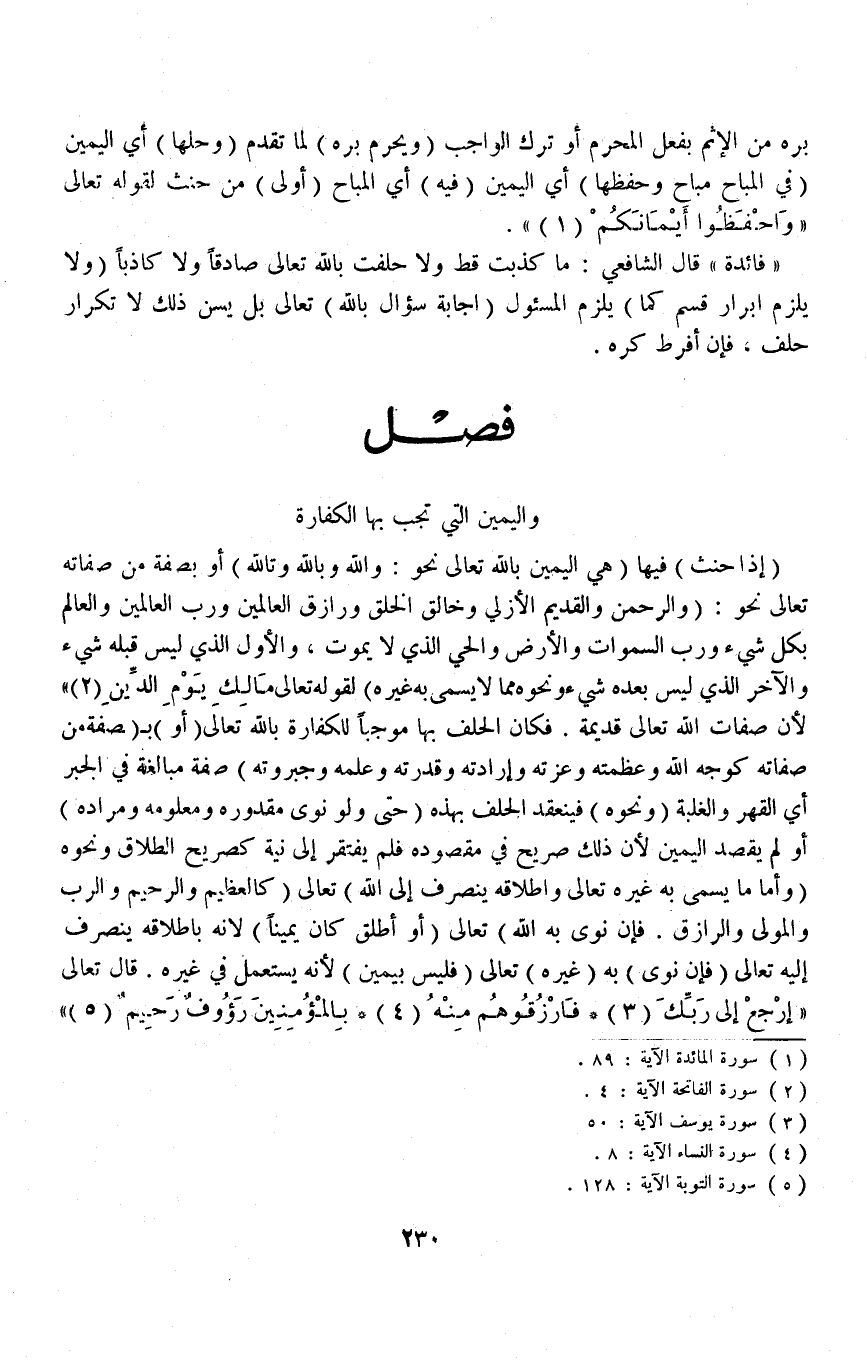 بره من الإثم بفعل المحرم أو ترك الواجب ( ويحرم بره ) لما تقدم ( وحلها ) أي اليمين
( في المباح مباح وحفظها ) أي اليمين ( فيه ) أي المباح ( أولى ) من حنث لقوله تعالى
« وَاحْفَظُوا أَيْمَانَكُمْ ( ١ ) » .
« فائدة » قال الشافعي : ما كذبت قط ولا حلفت بالله تعالى صادقاً ولا كاذباً ( ولا
يلزم ابرار قسم كما ) يلزم المسئول ( اجابة سؤال بالله ) تعالى بل يسن ذلك لا تكرار
حلف ، فإن أفرط كره .
فصل
واليمين التي تجب بها الكفارة
( إذا حنث ) فيها ( هي اليمين بالله تعالى نحو : والله وبالله وتالله ) أو بصفة من صفاته
تعالى نحو : ( والرحمن والقديم الأزلي وخالق الخلق ورازق العالمين ورب العالمين والعالم
بكل شيء ورب السموات والأرض والحي الذي لا يموت ، والأول الذي ليس قبله شيء
والآخر الذي ليس بعده شيء ونحوه مما لا يسمى به غيره ) لقوله تعالى مَالِكِ يَوْمِ الدِّينِ (٢)»
لأن صفات الله تعالى قديمة . فكان الحلف بها موجباً للكفارة بالله تعالى ( أو ) بـ( صفة من
صفاته كوجه الله وعظمته وعزته وإرادته وقدرته وعلمه وجبروته ) صفة مبالغة في الجبر
أي القهر والغلبة ( ونحوه ) فينعقد الحلف بهذه ( حتى ولو نوى مقدوره ومعلومه ومراده )
أو لم يقصد اليمين لأن ذلك صريح في مقصوده فلم يفتقر إلى نية كصريح الطلاق ونحوه
( وأما ما يسمى به غيره تعالى واطلاقه ينصرف إلى الله ) تعالى ( كالعظيم والرحيم والرب
والمولى والرازق . فإن نوى به الله ) تعالى ( أو أطلق كان يميناً ) لانه باطلاقه ينصرف
إليه تعالى ( فإن نوى ) به ( غيره ) تعالى ( فليس بيمين ) لأنه يستعمل في غيره . قال تعالى
« إِرْجِعْ إلى رَبِّكَ ( ٣ ) * فَارْزُقُوهُم مِنْهُ ( ٤ ) * بِالمْؤُمِنِينَ رَؤُوفٌ رَحِيمٌ ( ٥ )»
( ١ ) سورة المائدة الآية : ٨٩ .
( ٢ ) سورة الفاتحة الآية : ٤ .
( ٣ ) سورة يوسف الآية : ٥٠
( ٤ ) سورة النساء الآية : ٨ .
( ٥ ) سورة التوبة الآية : ١٢٨ .
٢٣٠